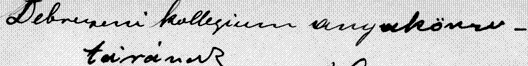 Debreczeni kollegium anyakönyv-
tárának